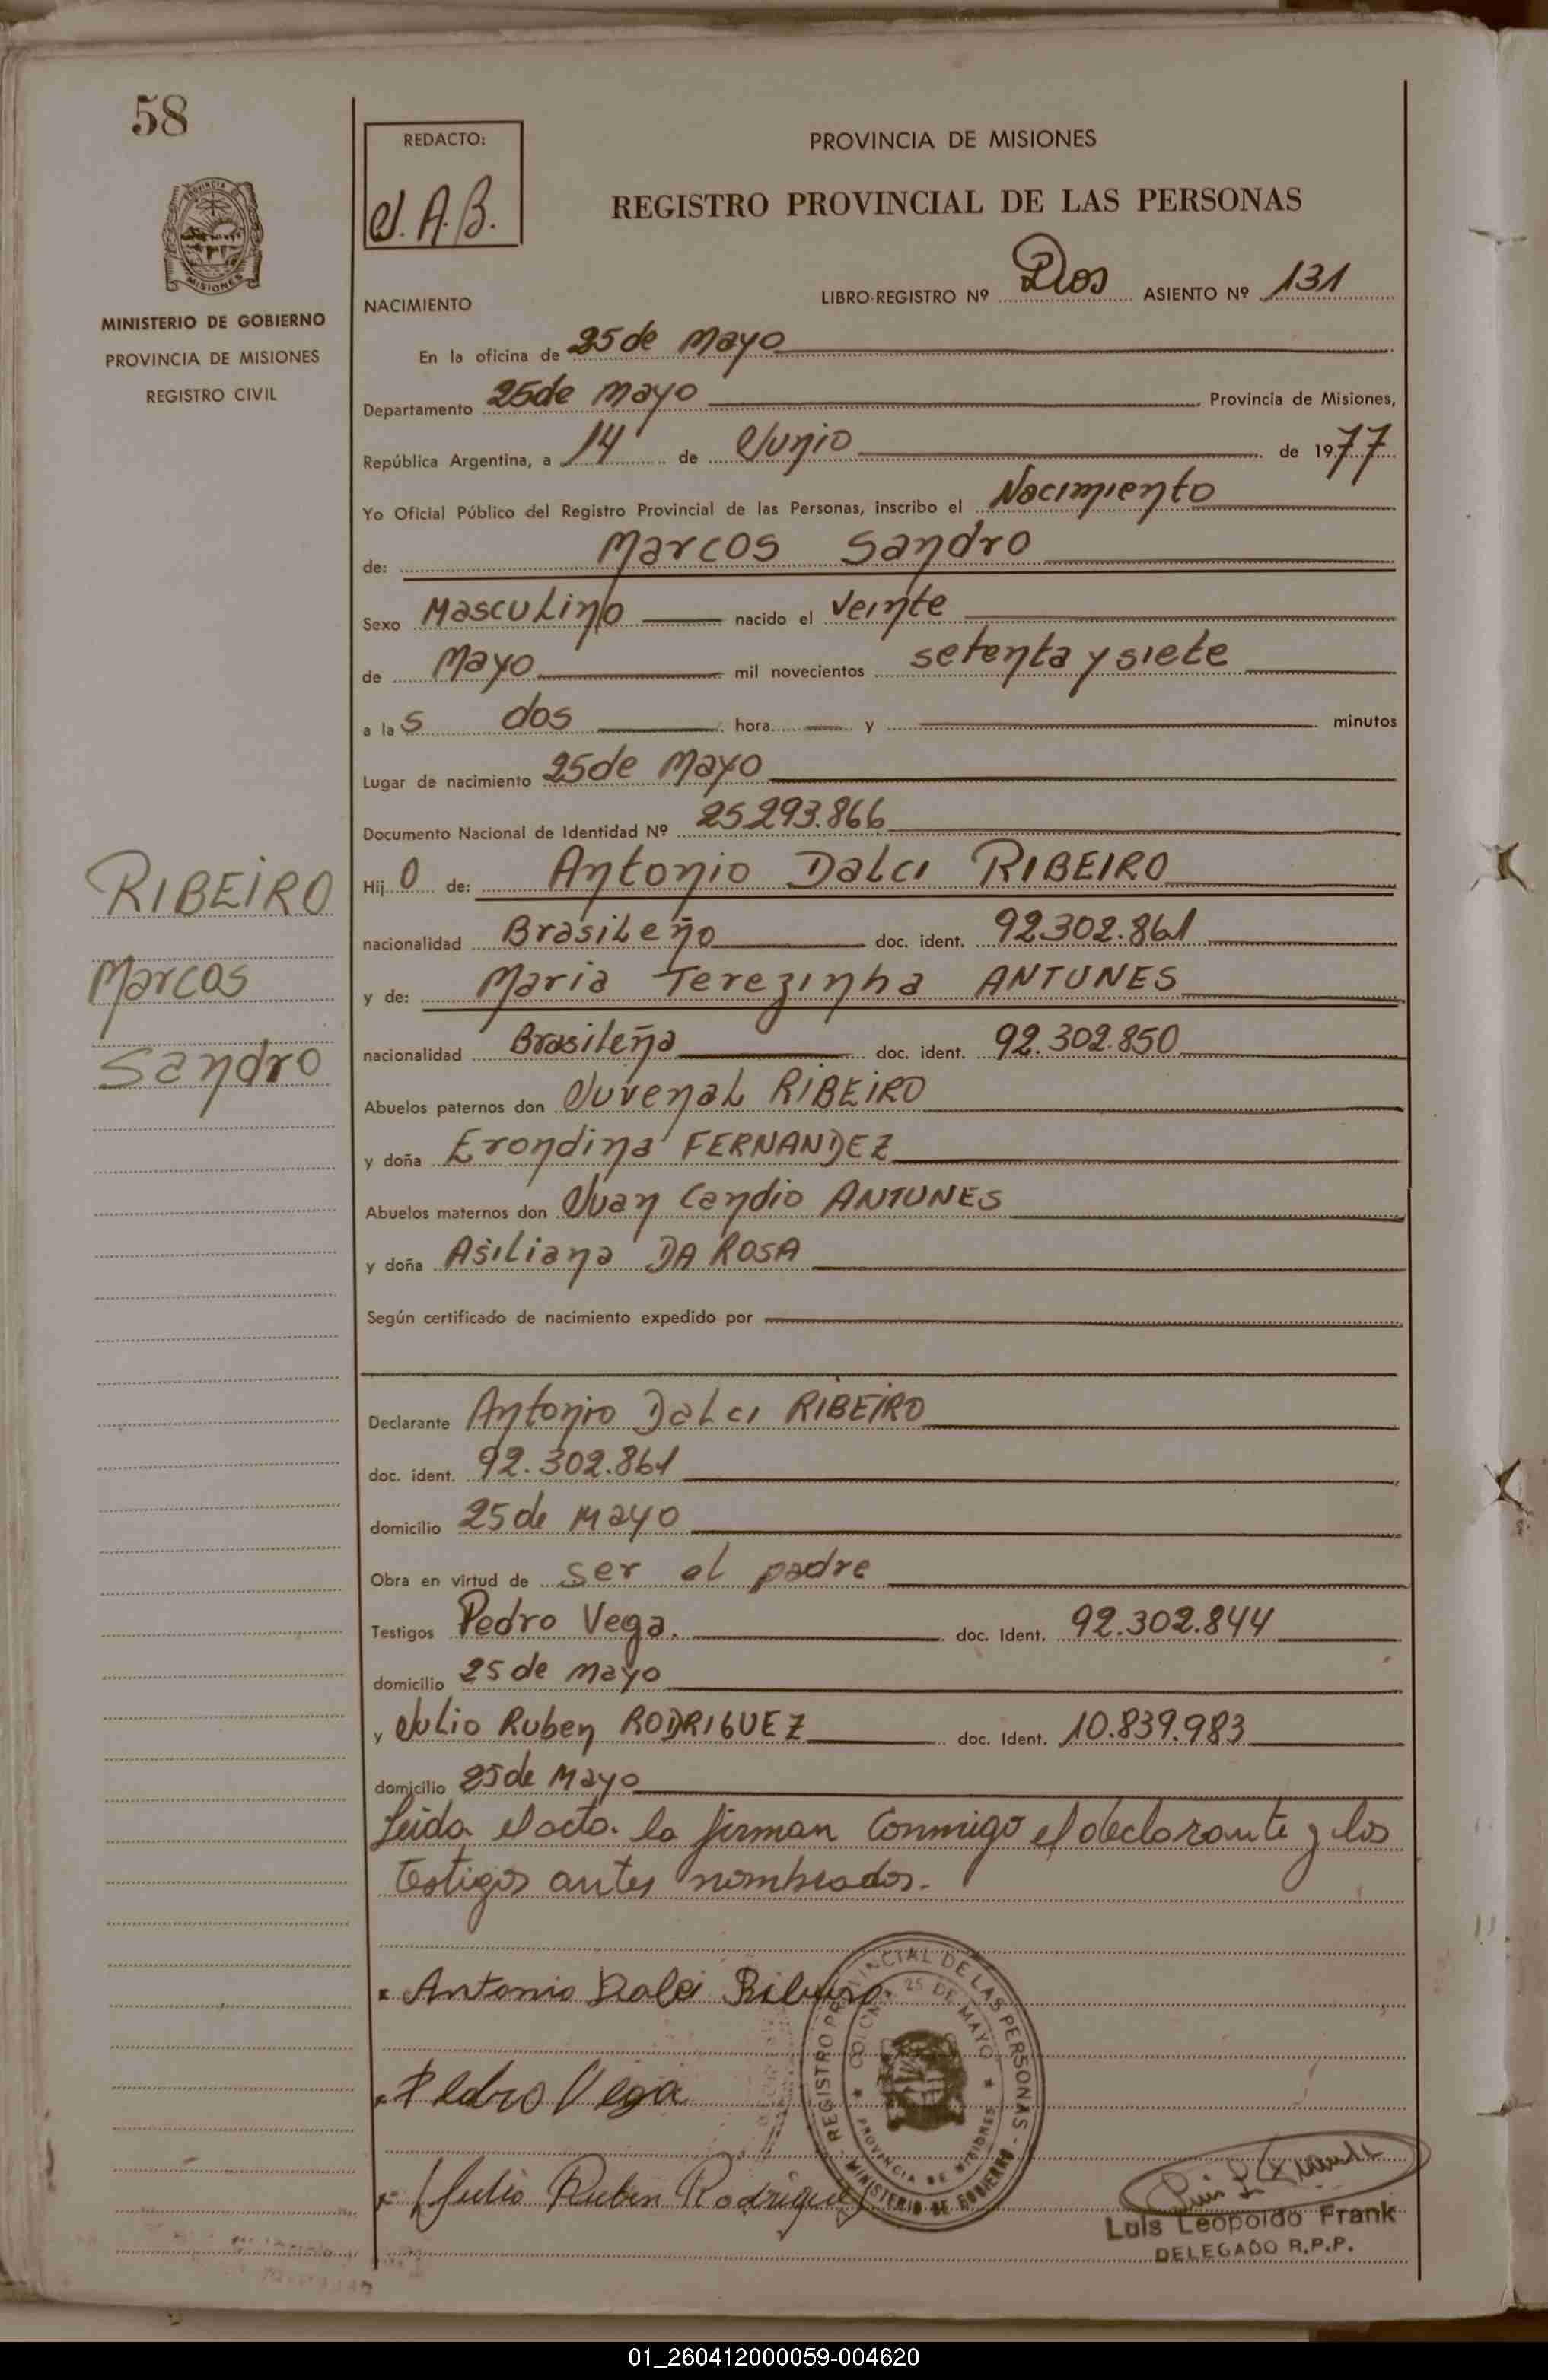 58
REDACTO:
J.A.B.
PROVINCIA DE MISIONES
REGISTRO PROVINCIAL DE LAS PERSONAS
MISIONES
MINISTERIO DE GOBIERNO
PROVINCIA DE MISIONES
REGISTRO CIVIL
NACIMIENTO
LIBRO-REGISTRO Nº Dos ASIENTO Nº 131
En la oficina de 25 de Mayo
Departamento 25 de Mayo Provincia de Misiones,
República Argentina, a 14 de Junio de 1977
Yo Oficial Público del Registro Provincial de las Personas, inscribo el Nacimiento
de: Marcos Sandro
Sexo Masculino nacido el Veinte
de Mayo mil novecientos setenta y siete
a las dos hora y minutos
Lugar de nacimiento 25 de Mayo
Documento Nacional de Identidad Nº 25.293.866
Hijo de: Antonio Dalci RIBEIRO
nacionalidad Brasileño doc. ident. 92.302.861
y de: Maria Terezinha ANTUNES
nacionalidad Brasileña doc. ident. 92.302.850
Abuelos paternos don Juvenal RIBEIRO
y doña Erondina FERNANDEZ
Abuelos maternos don Juan Candio ANTUNES
y doña Asiliana DA ROSA
Según certificado de nacimiento expedido por
Declarante Antonio Dalci RIBEIRO
doc. ident. 92.302.861
domicilio 25 de Mayo
Obra en virtud de ser el padre
Testigos Pedro Vega. doc. Ident. 92.302.844
domicilio 25 de Mayo
y Julio Ruben RODRIGUEZ doc. Ident. 10.839.983
domicilio 25 de Mayo
Leida el acta. la firman conmigo el declarante y los
testigos antes nombrados.
RIBEIRO
Marcos
Sandro
Antonio Dalci Ribeiro
Pedro Vega
Julio Ruben Rodriguez
REGISTRO PROVINCIAL DE LAS PERSONAS - MINISTERIO DE GOBIERNO
COLONIA 25 DE MAYO
PROVINCIA DE MISIONES
Luis Leopoldo Frank
DELEGADO R.P.P.
01_260412000059-004620